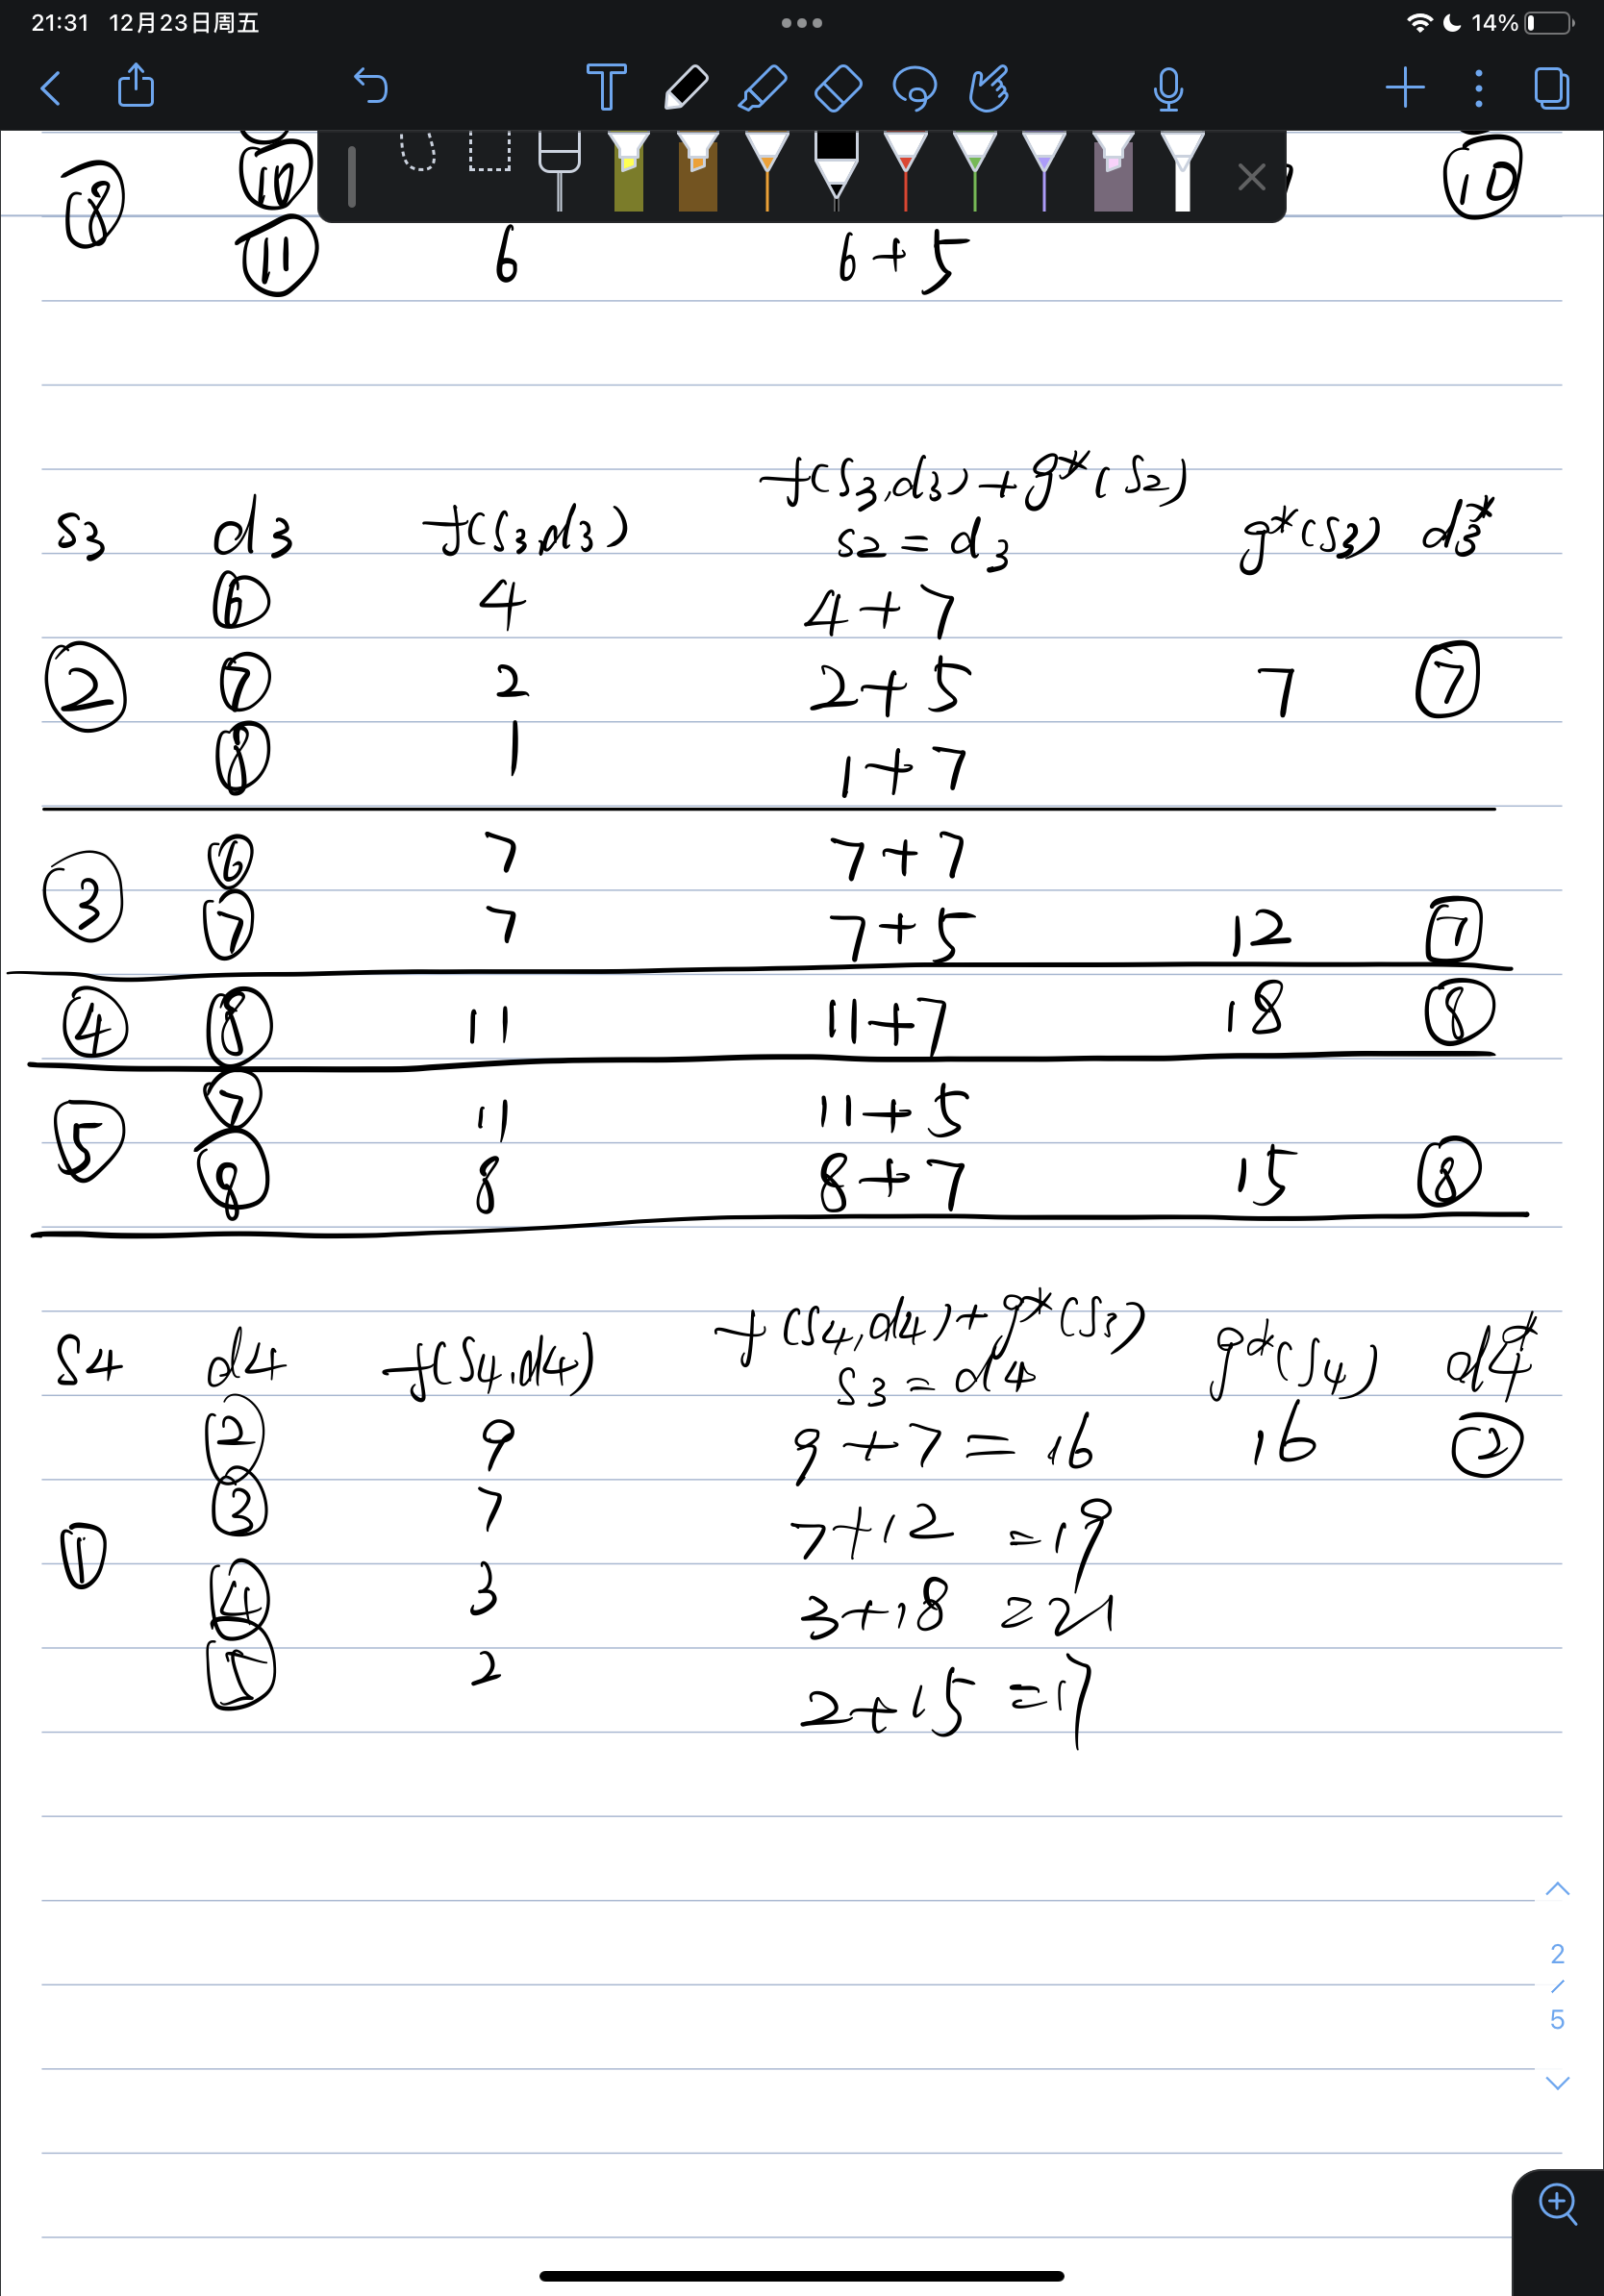 21:31 12月23日周五 14%
T
⑧ ⑩ ⑩
⑪ 6 6+5
f(S3,d3)+g*(S2)
S3 d3 f(S3,d3) S2=d3 g*(S3) d3*
⑥ 4 4+7
② ⑦ 2 2+5 7 ⑦
⑧ 1 1+7
⑥ 7 7+7
③ ⑦ 7 7+5 12 ⑦
④ ⑧ 11 11+7 18 ⑧
⑦ 11 11+5
⑤ ⑧ 8 8+7 15 ⑧
f(S4,d4)+g*(S3)
S4 d4 f(S4,d4) S3=d4 g*(S4) d4*
② 9 9+7=16 16 ②
③ 7 7+12=19
①
④ 3 3+18=21
⑤ 2 2+15=17
2
/
5